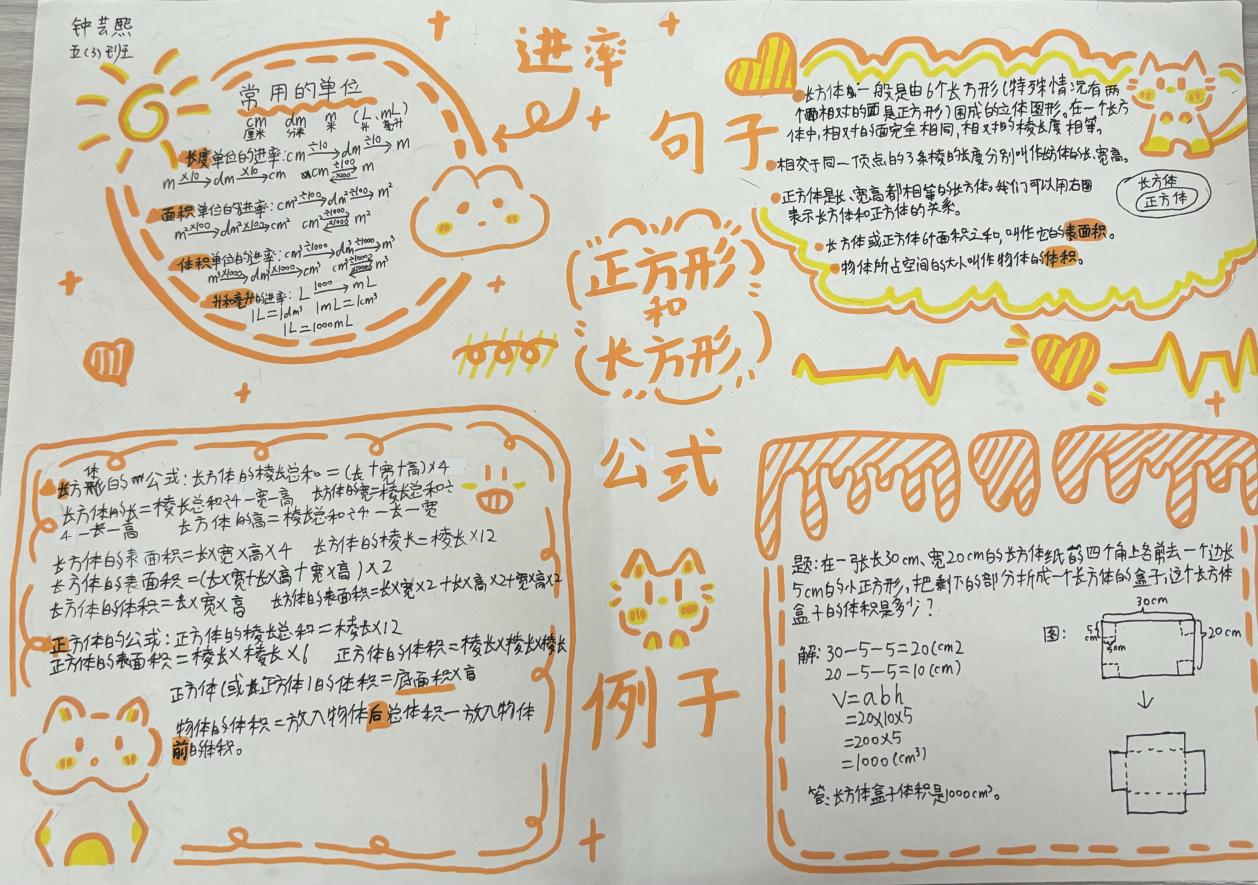 钟芸熙
五(3)班
进率
常用的单位
cm dm m (L、mL)
厘米 分米 米 升 毫升
长度单位的进率:cm÷10→dm÷10→m
m×10→dm×10→cm cm÷100→m
面积单位的进率:cm²÷100→dm²÷100→m²
m²×100→dm²×100→cm² cm²÷1000 m²
体积单位的进率:cm³÷1000→dm³÷1000→m³
m³×1000→dm³×1000→cm³ cm³ m³
升和毫升的进率:L 1000→mL
1L=1dm³ 1mL=1cm³
1L=1000mL
句子
长方体一般是由6个长方形(特殊情况有两
个面相对的面是正方形)围成的立体图形。在一个长方
体中,相对的面完全相同,相对的棱长度相等。
相交于同一个顶点的3条棱的长度分别叫作长方体的长、宽、高。
正方体是长、宽、高都相等的长方体。我们可以用右图
表示长方体和正方体的关系。
长方体
正方体
长方体或正方体6个面积之和,叫作它的表面积。
物体所占空间的大小叫作物体的体积。
正方形
和
长方形
公式
长方体的公式:长方体的棱长总和=(长+宽+高)×4
长方体的长=棱长总和÷4-宽-高 长方体的宽=棱长总和÷
4-长-高 长方体的高=棱长总和÷4-长-宽
长方体的表面积=长×宽×高×4 长方体的棱长=棱长×12
长方体的表面积=(长×宽+长×高+宽×高)×2
长方体的体积=长×宽×高 长方体的表面积=长×宽×2+长×高×2+宽×高×2
正方体的公式:正方体的棱长总和=棱长×12
正方体的表面积=棱长×棱长×6 正方体的体积=棱长×棱长×棱长
正方体(或长正方体)的体积=底面积×高
物体的体积=放入物体后总体积-放入物体
前的体积。
例子
题:在一张长30cm、宽20cm的长方体纸的四个角上各剪去一个边长
5cm的小正方形,把剩下的部分折成一个长方体的盒子,这个长方体
盒子的体积是多少?
图:
30cm
20cm
5cm
5cm
解:30-5-5=20(cm2
20-5-5=10(cm)
V=abh
=20×10×5
=200×5
=1000(cm³)
答:长方体盒子体积是1000cm³。